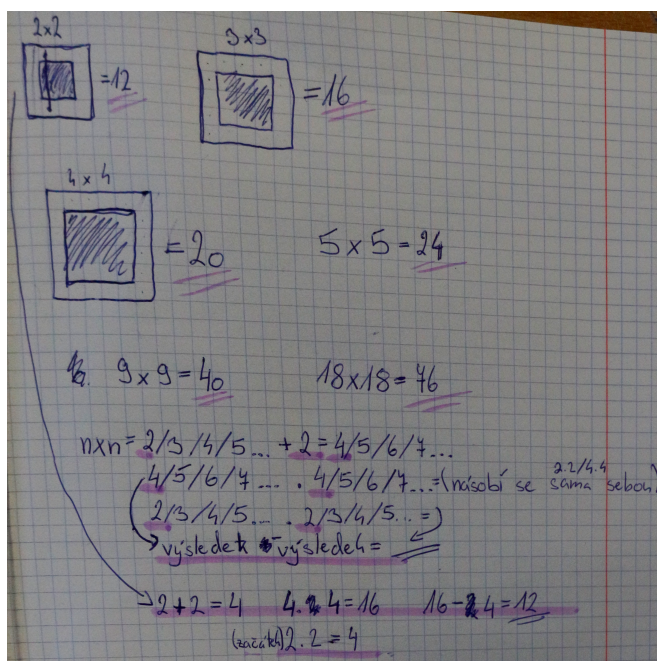 2x2 3x3
=12 =16
4x4
=20 5x5=24
9x9=40 18x18=76
nxn=2/3/4/5... +2=4/5/6/7...
2.2/4.4
4/5/6/7... . 4/5/6/7...=(násobí se sama sebou)
2/3/4/5... . 2/3/4/5... =)
výsledek - výsledek =
2+2=4 4.4=16 16-4=12
(začátek) 2.2=4